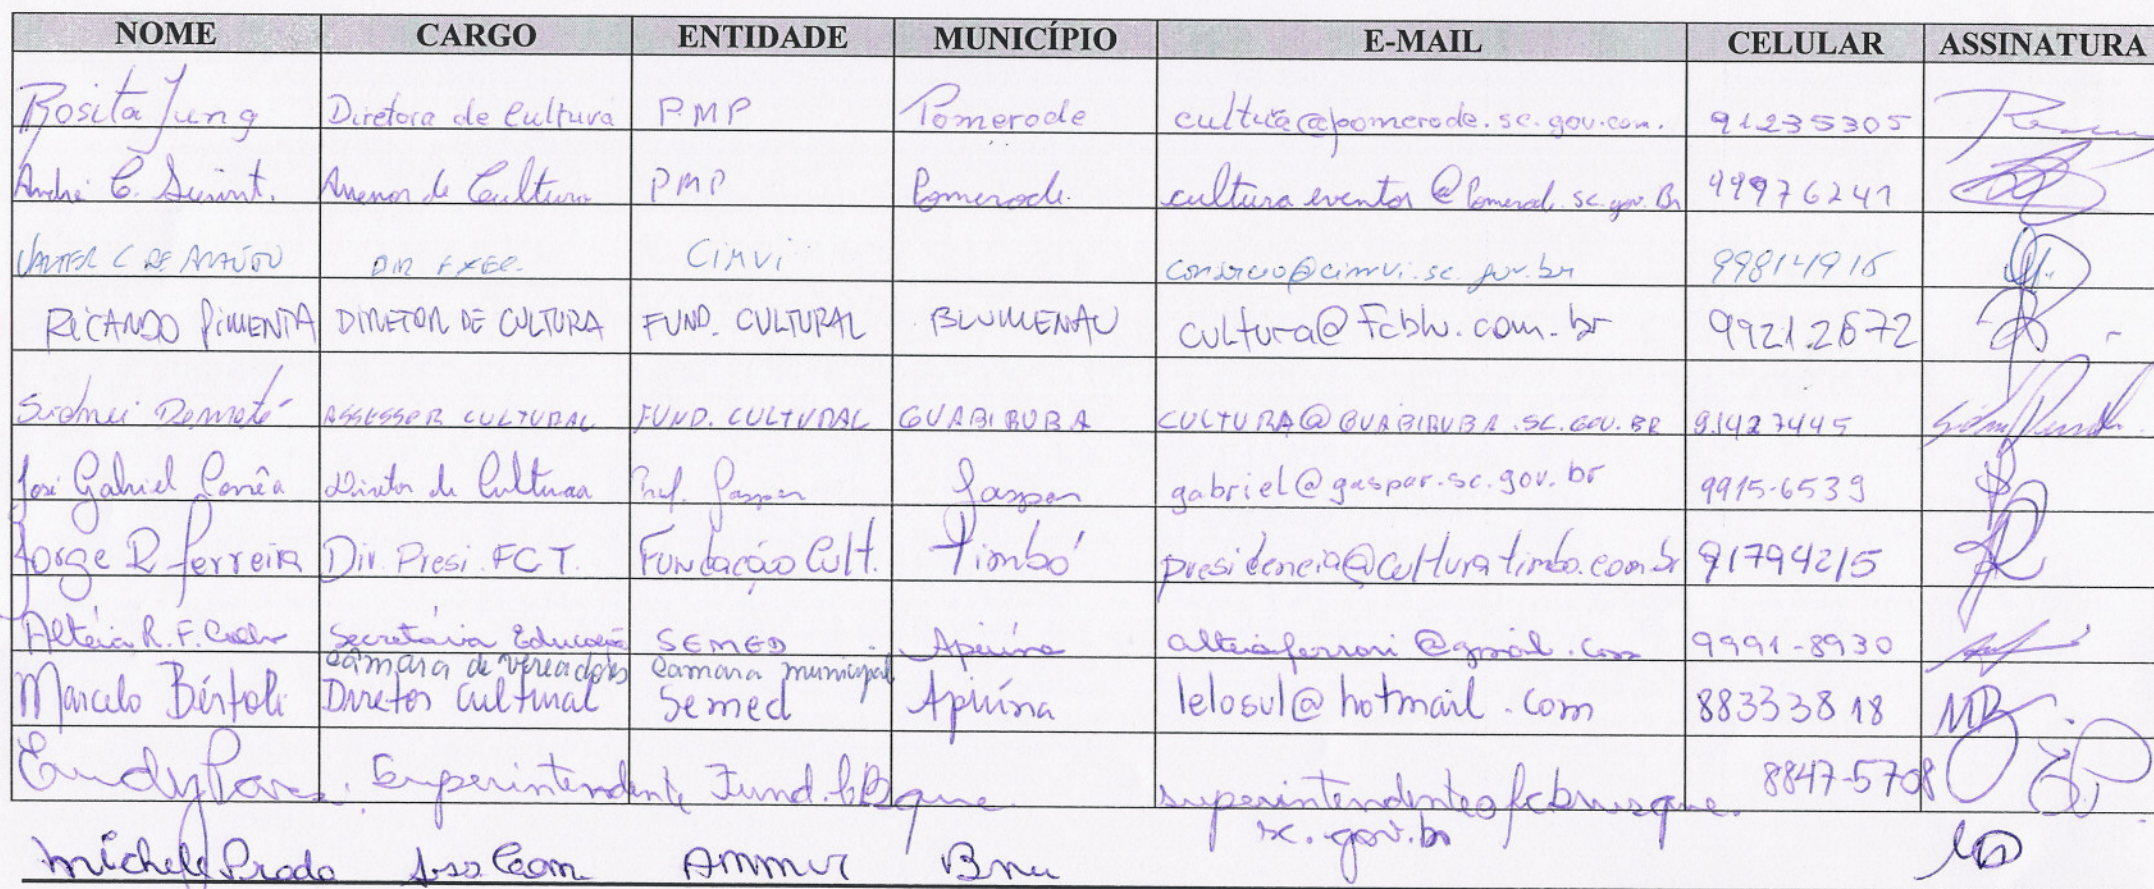 NOME CARGO ENTIDADE MUNICÍPIO E-MAIL CELULAR ASSINATURA
Rosita Jung Diretora de Cultura PMP Pomerode cultura@pomerode.sc.gov.com. 91235305
André C. Assessor de Cultura PMP Pomerode. cultura eventos @Pomerode.sc.gov.Br 99976241
VALTER C DE ARAÚJO DIR EXEC. CIMVI consorcio@cimvi.sc.gov.br 99814916
RICARDO PIMENTA DIRETOR DE CULTURA FUND. CULTURAL BLUMENAU cultura@fcblu.com.br 99212672
Sidnei Dematé ASSESSOR CULTURAL FUND. CULTURAL GUABIRUBA CULTURA@GUABIRUBA.SC.GOV.BR 91427445
José Gabriel Corrêa Diretor de Cultura Pref. Gaspar Gaspar gabriel@gaspar.sc.gov.br 9915-6539
Jorge R Ferreira Dir. Presi. FCT. Fundação Cult. Timbó presidencia@culturatimbo.com.br 91794215
Altéia R. F. Secretária Educação SEMED Apiúna alteiaferrari@gmail.com 9991-8930
câmara de vereadores camara municipal
Marcelo Bértoli Diretor Cultural Semed Apiúna lelosul@hotmail.com 88333818 MB
Superintendente Fund. C. Bsque superintendente@fcbrusque. 8847-5708
sc.gov.br
Michele Prado Ass Com AMMVI Bnu